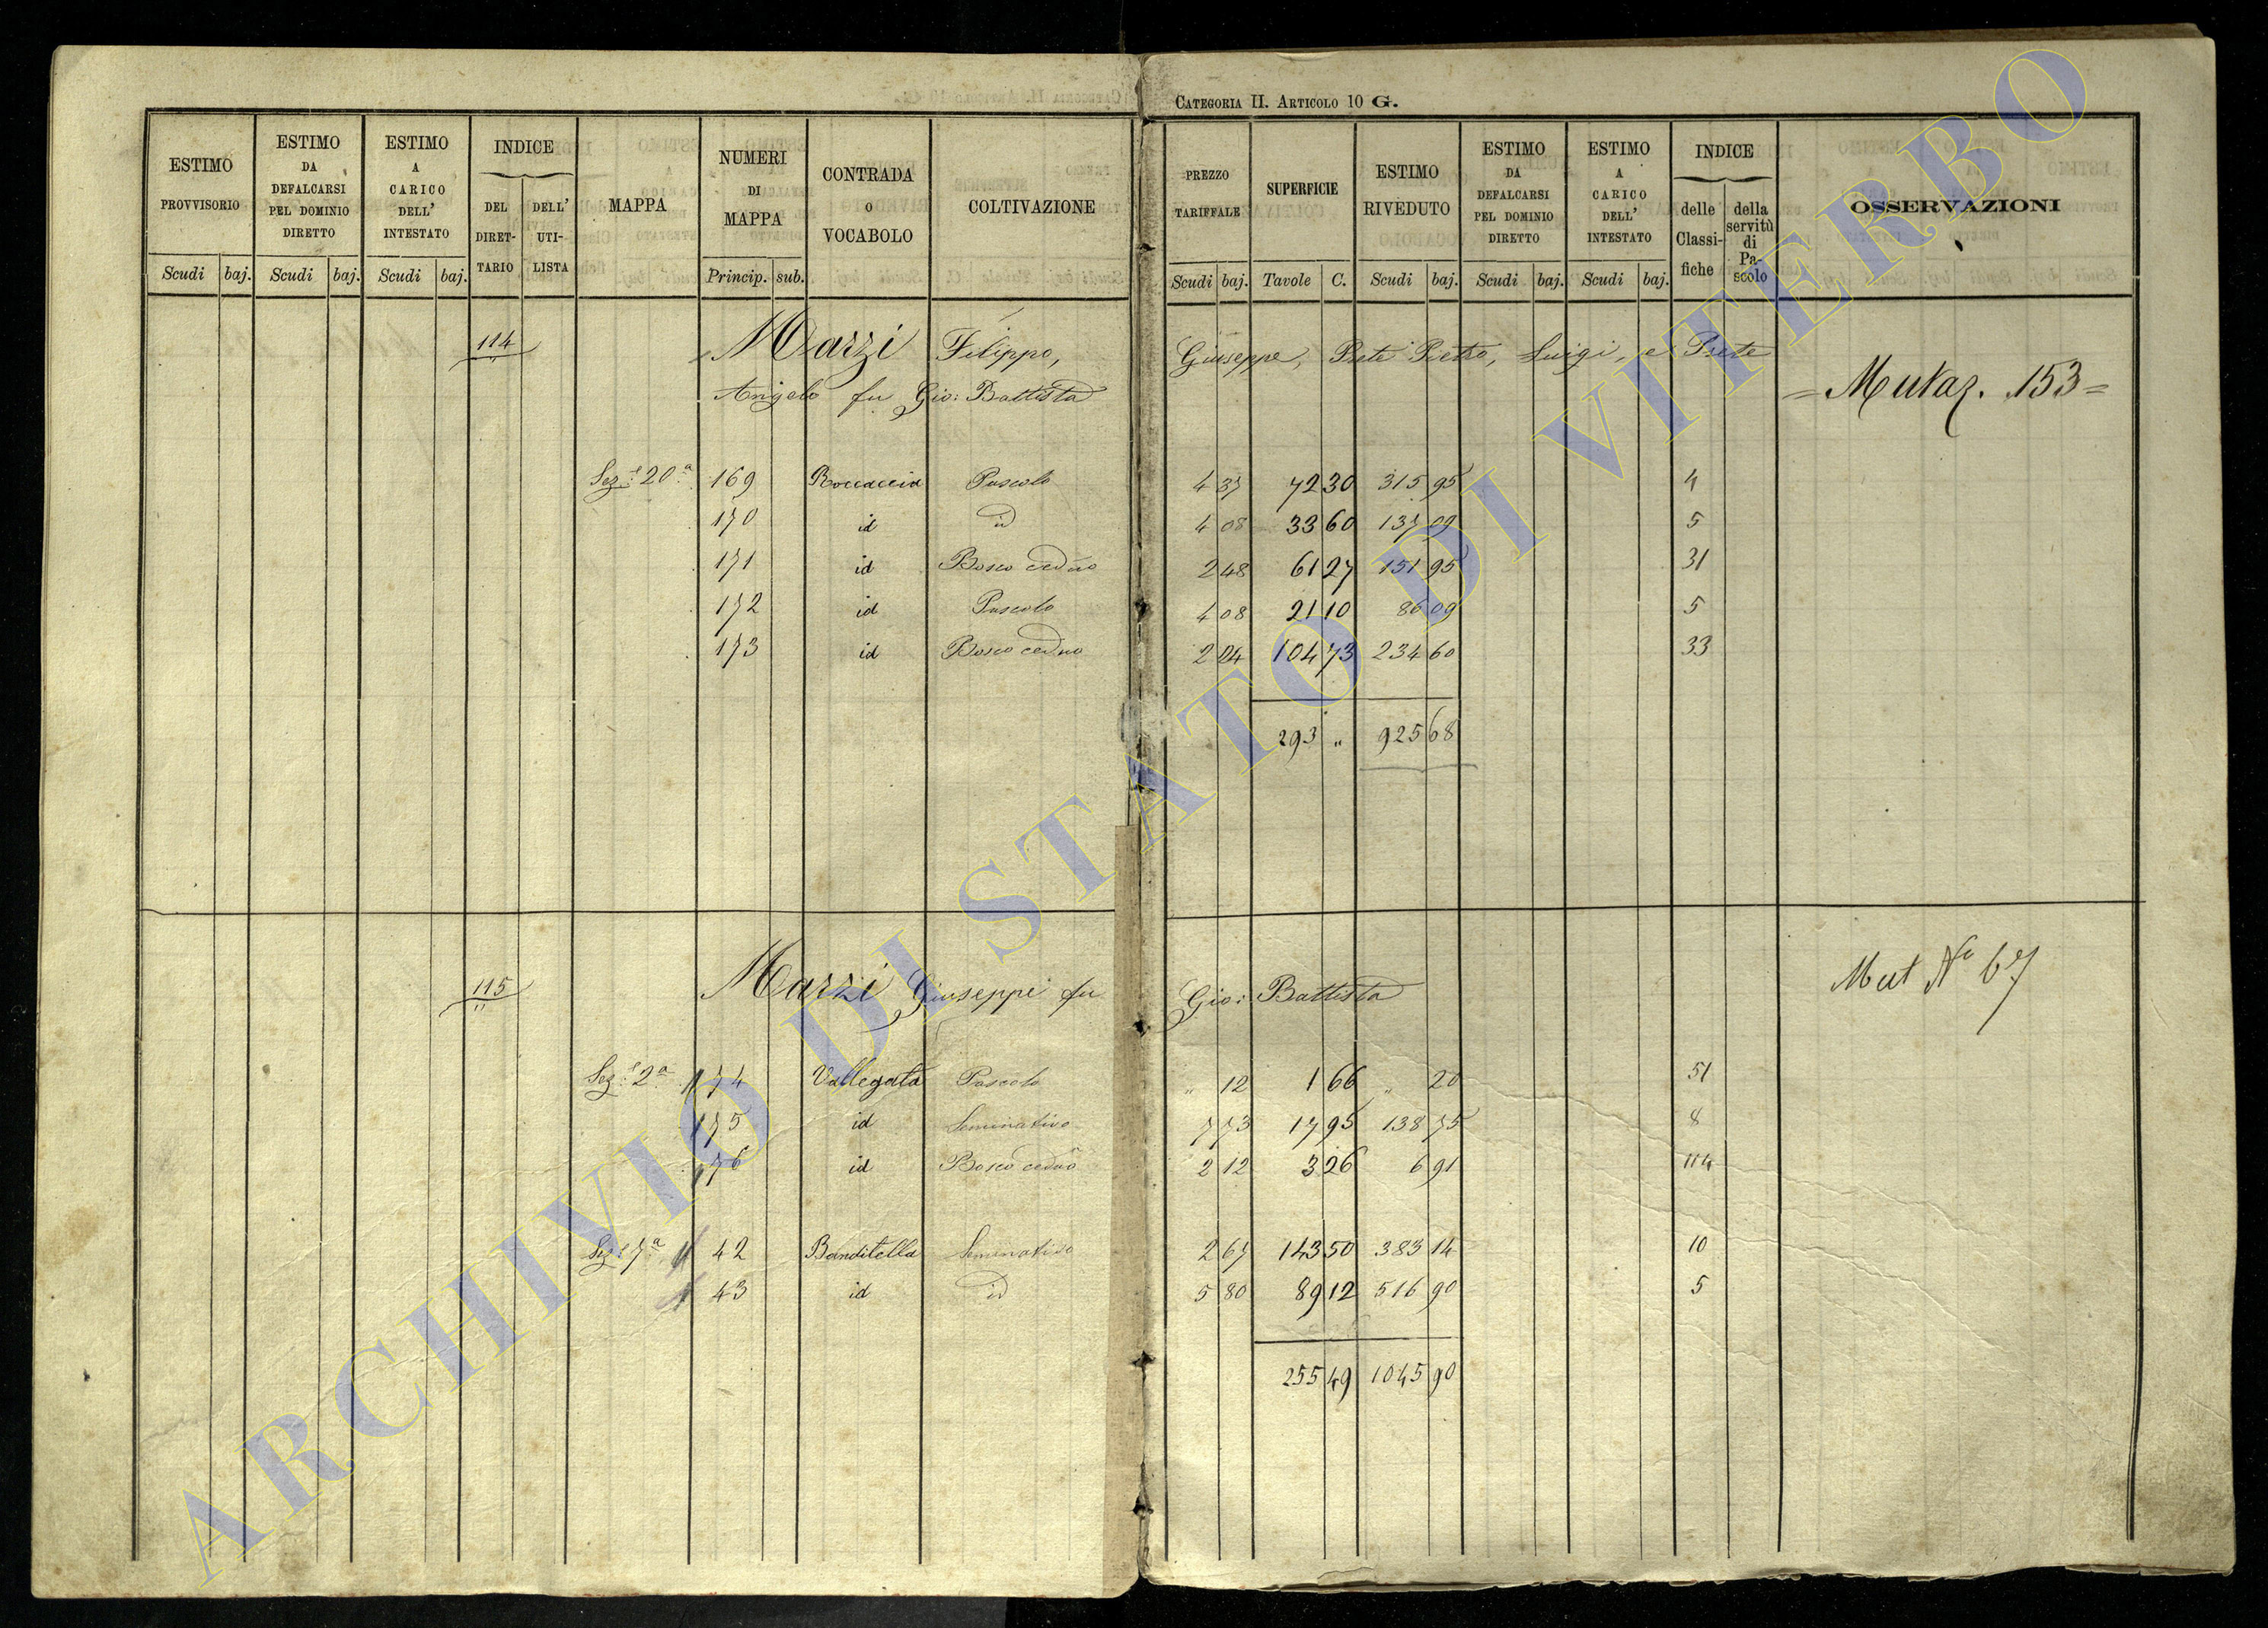 CATEGORIA II. ARTICOLO 10 G.
ESTIMO PROVVISORIO
ESTIMO DA DEFALCARSI PEL DOMINIO DIRETTO
ESTIMO A CARICO DELL' INTESTATO
INDICE
DEL DIRET-TARIO
DELL' UTI-LISTA
MAPPA
NUMERI DI MAPPA
CONTRADA O VOCABOLO
COLTIVAZIONE
PREZZO TARIFFALE
SUPERFICIE
ESTIMO RIVEDUTO
ESTIMO DA DEFALCARSI PEL DOMINIO DIRETTO
ESTIMO A CARICO DELL' INTESTATO
INDICE
delle Classi-fiche
della servitù di Pa-scolo
OSSERVAZIONI
Scudi baj. Scudi baj. Scudi baj. Princip. sub. Scudi baj. Tavole C. Scudi baj. Scudi baj. Scudi baj.
114 Marzi Filippo, Giuseppe, Prete Pietro, Luigi, e Prete
Angelo fu Gio: Battista
= Mutaz. 153 =
Sez.e 20a 169 Roccaccia Pascolo 4 37 72 30 315 95 4
170 id id 4 08 33 60 137 09 5
171 id Bosco ceduo 2 48 61 27 151 95 31
172 id Pascolo 4 08 21 10 86 09 5
173 id Bosco ceduo 2 24 104 73 234 60 33
293 " 925 68
115 Marzi Giuseppe fu Gio: Battista
Mut No 67
Sez.e 2a 174 Vallegata Pascolo " 12 1 66 " 20 51
175 id Seminativo 7 73 17 95 138 75 8
176 id Bosco ceduo 2 12 3 26 6 91 114
Sez.e 7a 42 Banditella Seminativo 2 67 143 50 383 14 10
43 id id 5 80 89 12 516 90 5
255 49 1045 90
ARCHIVIO DI STATO DI VITERBO